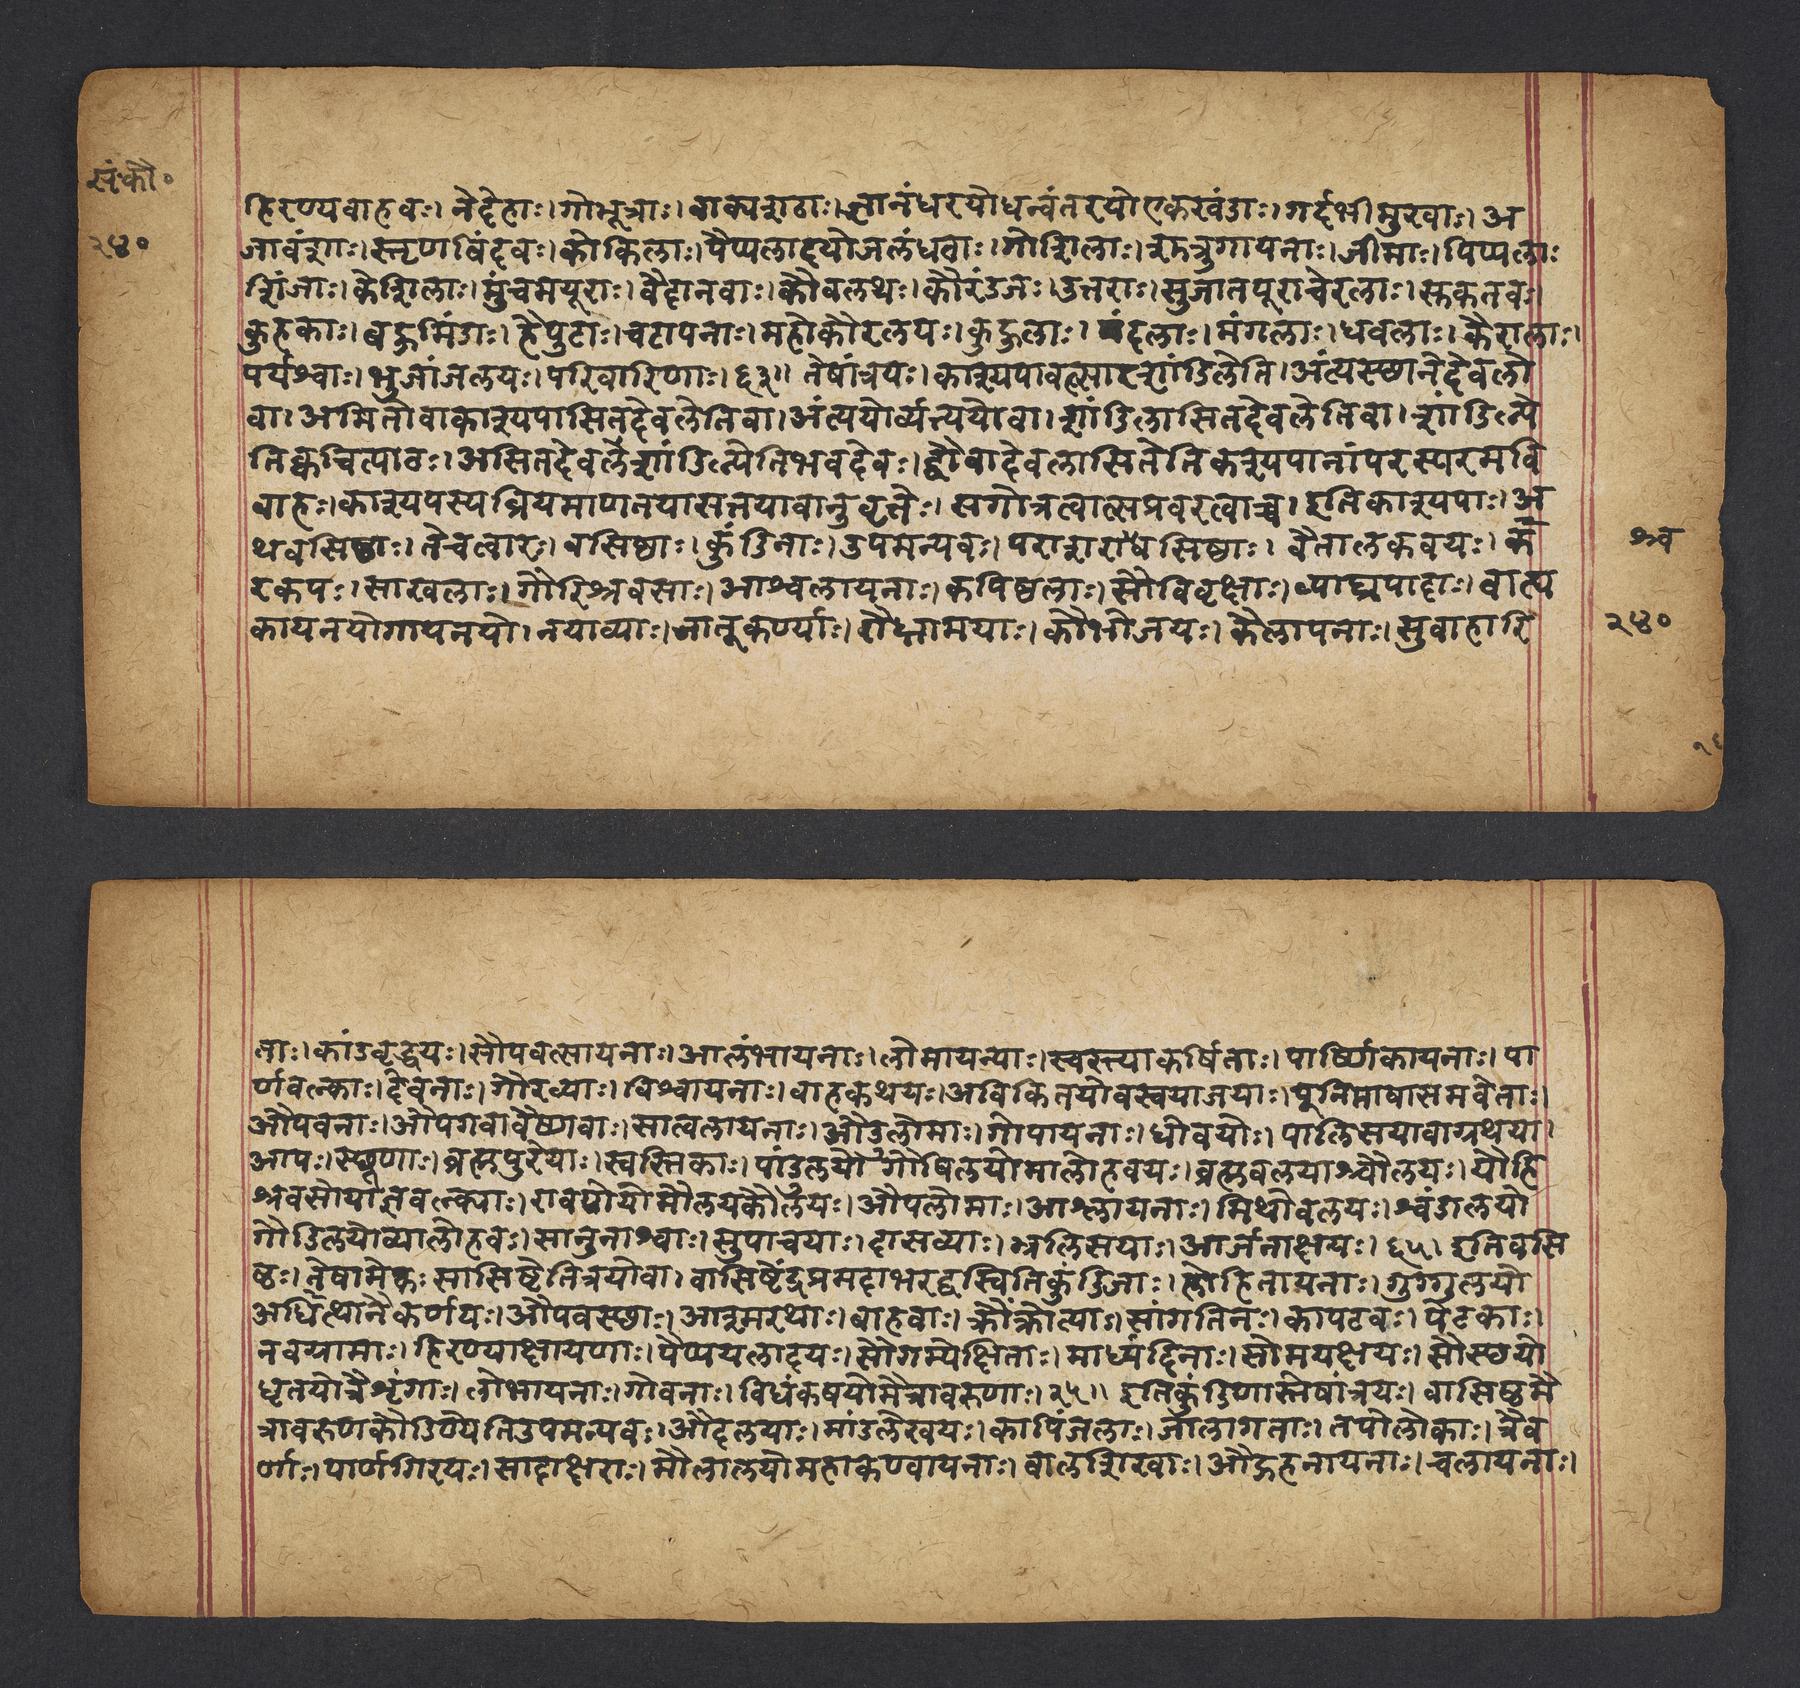 सं.कौ०
२४०
हिरण्यबाहवः। नैदेहाः। गोभूत्राः। वाक्यशठाः। जानंधरयोधन्वंतरयोएकखंडाः। गर्दभीमुखाः। अ
जावंशाः। स्तृणबिंदवः। कोकिलाः। पैप्पलादयोजलंधवाः। गोशिलाः। शतत्रुगायनाः। जीमाः। पिप्पलाः
शिंजाः। कैशिलाः। मुंचमयूराः। वैदानवाः। कौवलथः। कौरंडजः। उत्तराः। सुजातपूराचेरलाः। स्तकतवः।
कुहकाः। बहुमिंडाः। हैपुटाः। चटापनाः। महोकौरलपः। कुहुलाः। मंदलाः। मंगलाः। धवलाः। कैरालाः।
पर्यश्वाः। भुजांजलयः। परिवारिणाः। ६३॥ तेषांत्रयः। काश्यपावत्सारशांडिलेति। अंत्यस्छानेदेवलो
वा। अमितोवाकाश्यपासितदेवलेतिवा। अंत्ययोर्व्यत्ययोवा। शांडिलासितदेवलेतिवा। शांडिल्ये
तिक्वचित्पाठः। असितदेवलेशांडिल्येतिभवदेवः। द्वौवादेवलासितेतिकश्यपानांपरस्परमवि
वाहः। काश्यपस्यध्रियमाणतयासत्तयावानुवृत्तेः। सगोत्रत्वात्सप्रवरत्वाच्च। इतिकाश्यपाः। अ
थवसिष्ठाः। तेचत्वारः। वसिष्ठाः। कुंडिनाः। उपमन्यवः। पराशराश्रेसिष्ठाः। वैतालकवयः। क
श्व
रकपः। साखलाः। गौरिश्रवसाः। आश्वलायनाः। कपिष्ठलाः। सौविवृक्षाः। व्याघ्रपादाः। वात्य
कायनयोगायनयो। नयाव्याः। जातूकर्ण्याः। रौध्नामयाः। कौभोजयः। कैलापनाः। सुवाहारि
२४०
ताः। कांडवृद्धयः। सौपवत्सायनाः। आलंभायनाः। लोमायन्याः। स्वस्त्याकर्षिताः। पार्ष्णिकायनाः। पा
र्णवल्काः। देवनाः। गौरव्याः। विश्वायनाः। वाहकथयः। अविकितयोवस्वयाजयाः। पूतिमाषासमवेताः।
औपवनाः। औपगवावैष्णवाः। सात्वलायनाः। औडुलोमाः। गोपायनाः। धीवयोः। पालिसयावाग्रथया।
आपः। स्छूणाः। ब्रह्मपुरेयाः। स्वस्तिकाः। पांडुलयो गौषिलयोमालोहवयः। ब्रह्मवलयाश्चौलयः। यौहि
श्रवसोयाज्ञवल्क्याः। रावणेयोमौलयकौलेयः। औपलोमाः। आश्लायनाः। मिथोवलयः। श्वंडलयो
गौडिलयोव्यालोहवः। सानुनाश्वाः। सुपाचयाः। दासव्याः। भ्रलिसयाः। आर्जनाक्षयः। ६५। इतिवसि
ष्ठः। तेषामेकः सासिष्टेतित्रयोवा। वासिष्टेंद्रप्रमदाभरद्वस्वितिकुंडिजाः। लोहितायनाः। गुग्गुलयो
अर्धित्थानैकर्णयः। औपवस्छाः। आश्मरथाः। बाहवाः। क्रौंक्रोत्याः। सांगतिनः। कापटवः। पेटकाः।
नवग्रामाः। हिरण्याक्षायणाः। पैप्पयलादयः। सौगम्येक्षिताः। माध्यंदिनाः। सौमयक्षयः। सौस्छयो
धृतयोत्रैशृंगाः। लोभायनाः। गोवनाः। विधंकषयोमैत्रावरुणाः। २५॥ इतिकुंडिणास्तेषांत्रयः। वासिष्ठमै
त्रावरुणकौडिण्येतिउपमन्यवः। औदलयाः। मांडलेखयः। कापिंजलाः। जालागताः। तपोलोकाः। त्रैव
र्णाः। पार्णगिरयः। सादाक्षराः। मौलालयोमहाकण्वायनाः। बालशिखाः। औद्गहनायनाः। चलायनाः।